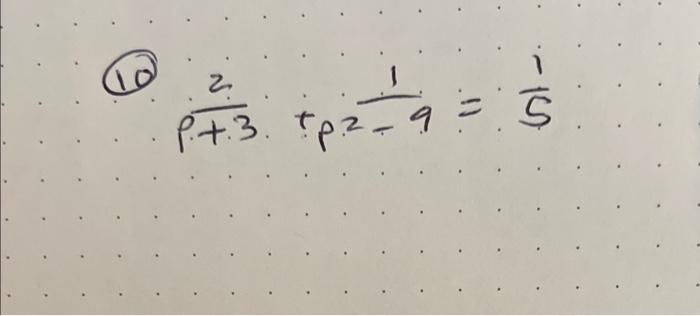 ⑩ 2/(p+3) + 1/(p²-9) = 1/5